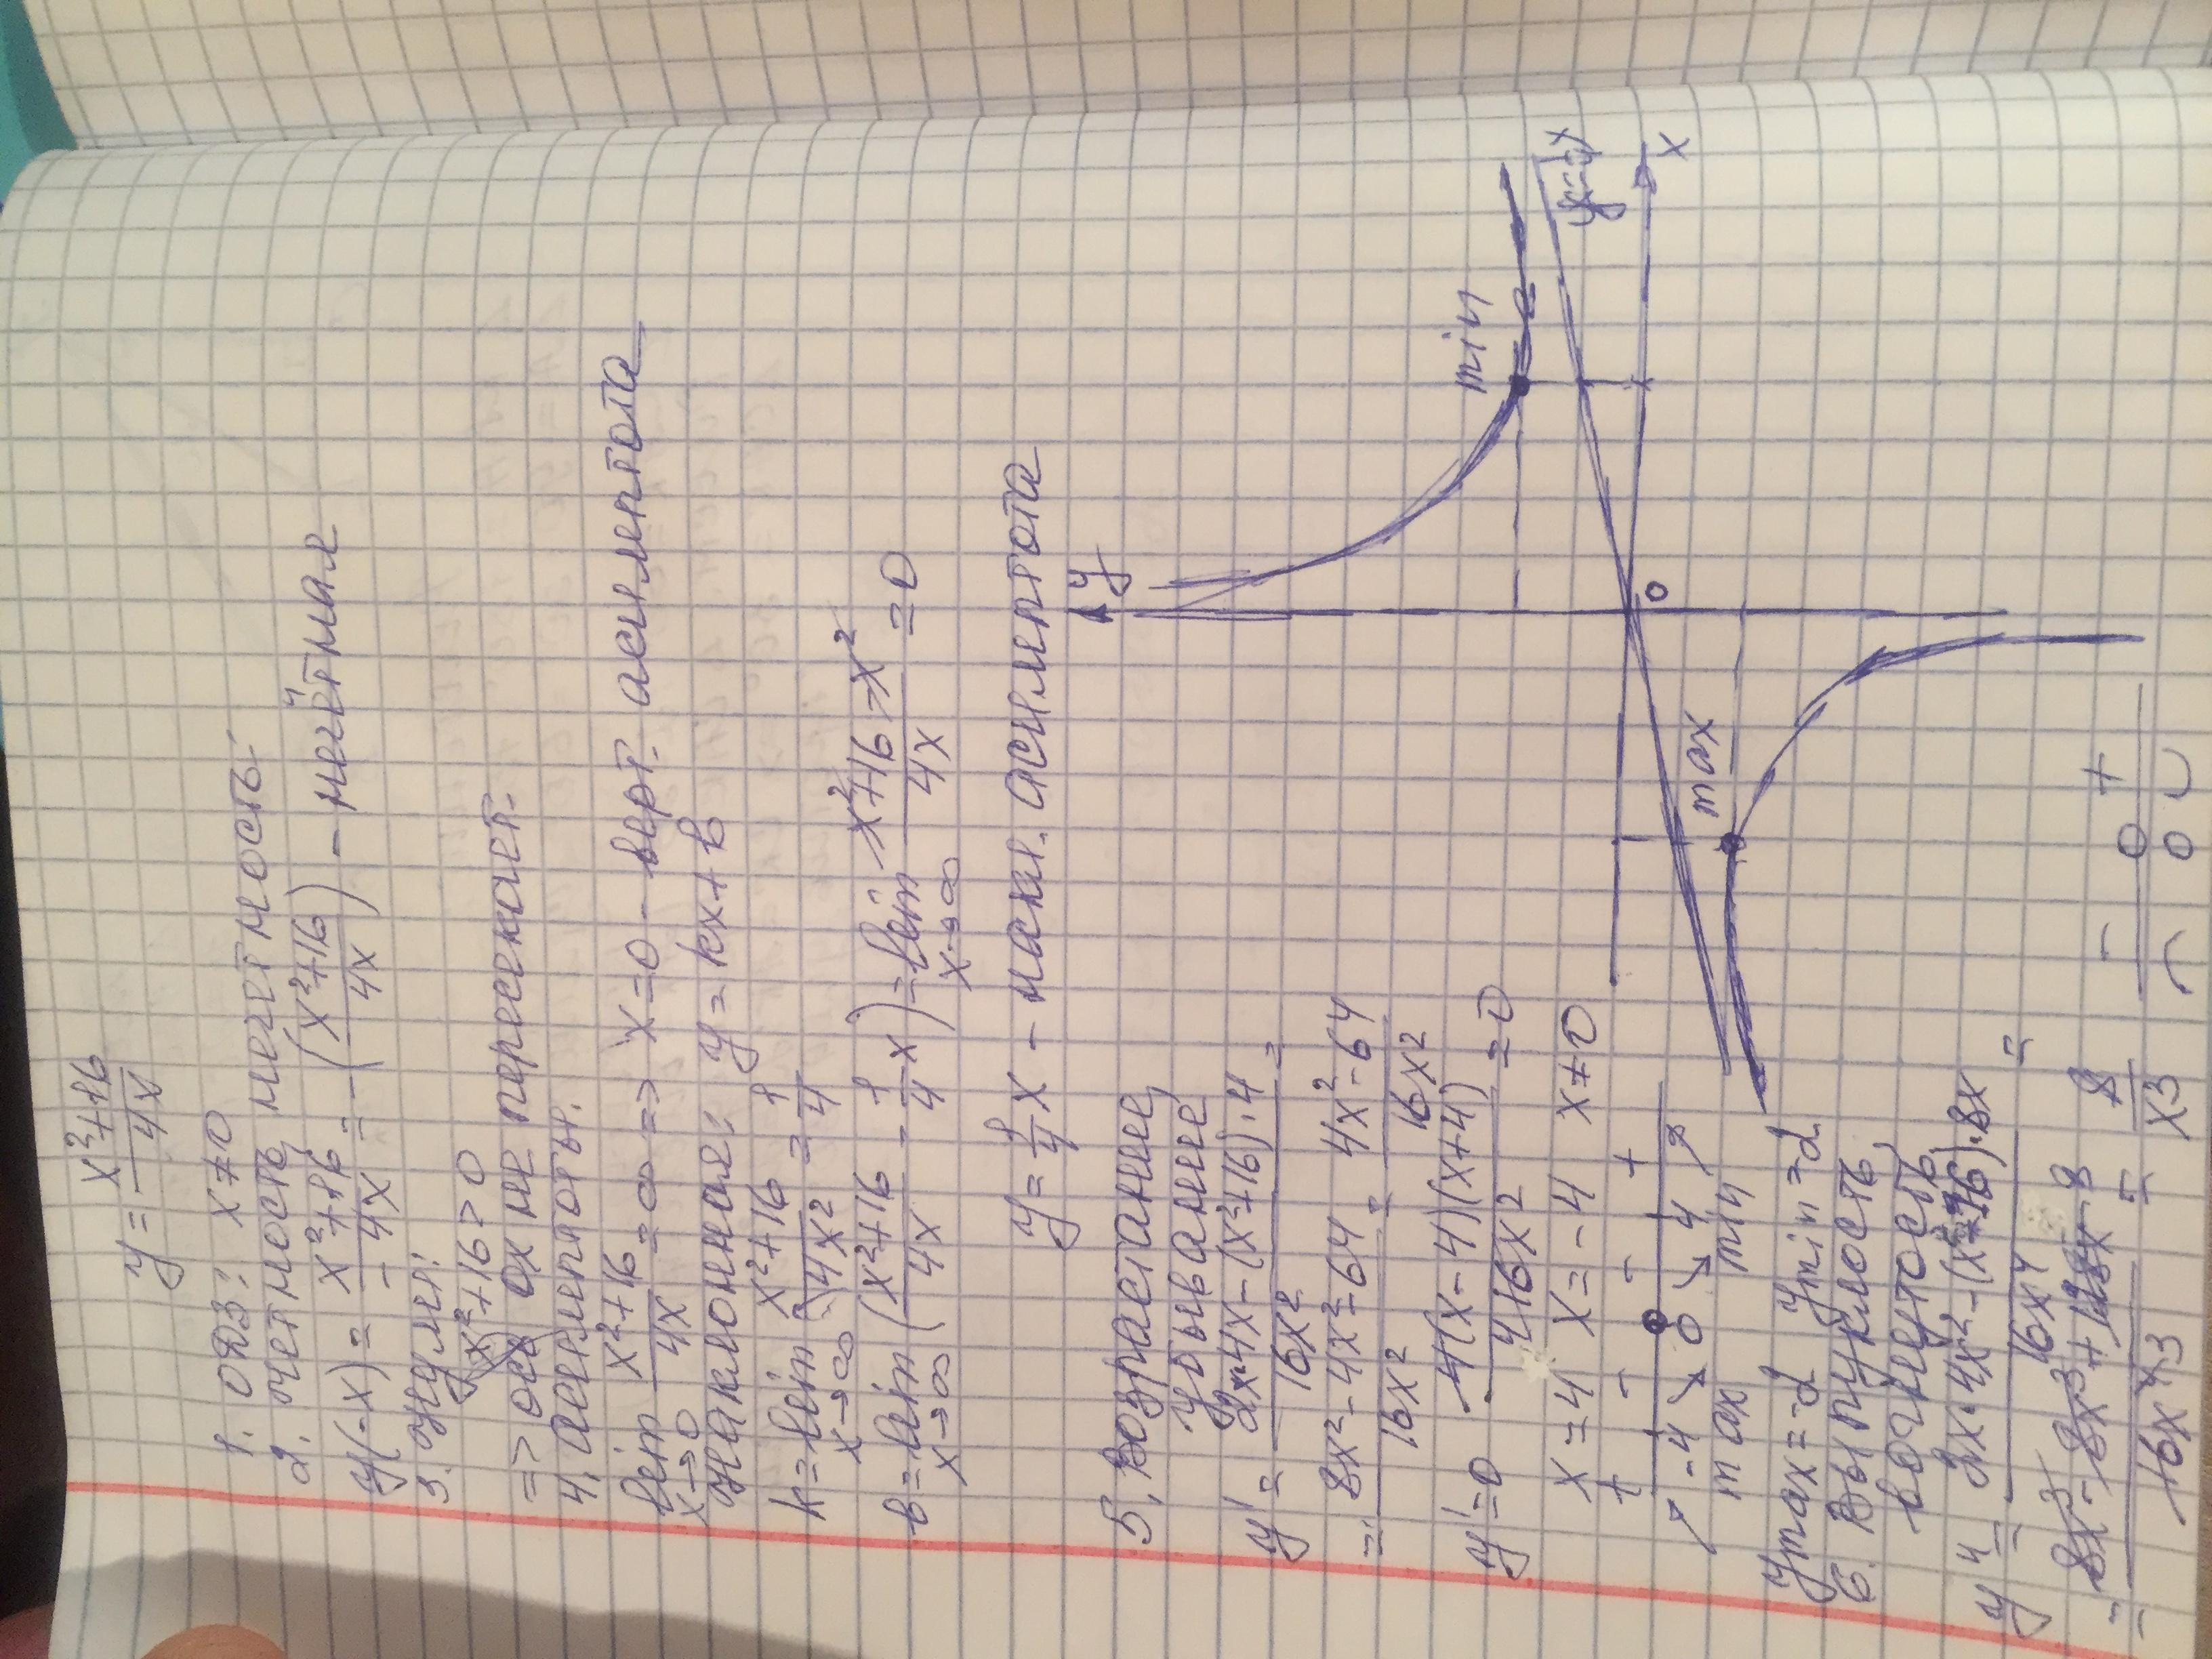 y = (x²+16)/(4x)
1. ОДЗ: x≠0
2. четность, нечетность:
y(-x) = (x²+16)/(-4x) = -((x²+16)/(4x)) - нечётная
3. Нули:
x²+16>0
=> ось ox не пересекает.
4. Асимптоты.
lim x→0 (x²+16)/(4x) = ∞ => x=0 - верт. асимптота
Наклонная: y = kx+b
k = lim x→∞ (x²+16)/(4x²) = 1/4
b = lim x→∞ ((x²+16)/(4x) - 1/4 x) = lim x→∞ (x²+16-x²)/(4x) = 0
y = 1/4 x - накл. асимптота
5. Возрастание,
убывание
y' = (2x·4x-(x²+16)·4)/(16x²) =
= (8x²-4x²-64)/(16x²) = (4x²-64)/(16x²)
y'=0 4(x-4)(x+4)/(16x²) = 0
x=4 x=-4 x≠0
+ - - +
-4 0 4
max min
ymax=-2 ymin=2
6. Выпуклость,
вогнутость
16x⁴
= 8/x³
- 0 +
0
y
x
0
min
max